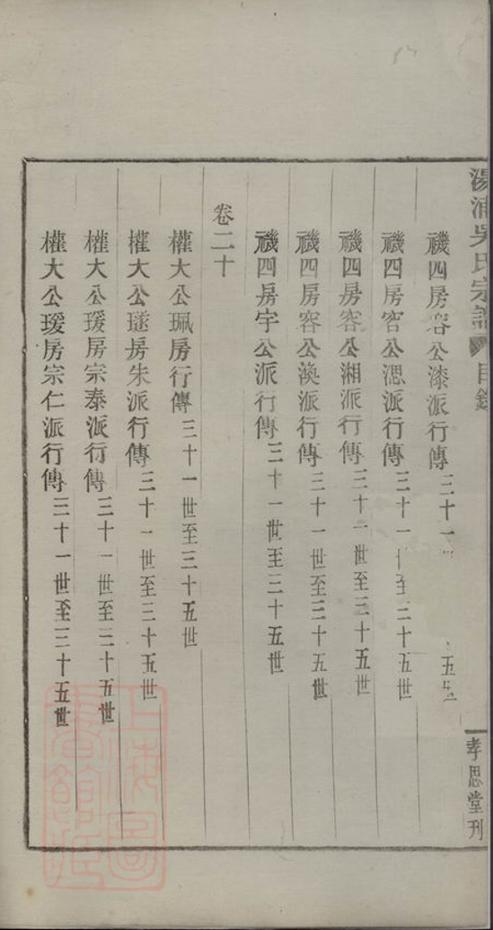 湯浦吳氏宗譜 目錄
孝思堂刊
禨四房容公漆派行傳 三十一 五
禨四房容公漗派行傳 三十一 至三十五世
禨四房容公湘派行傳 三十一世至三十五世
禨四房容公渙派行傳 三十一世至三十五世
禨四房宇公派行傳 三十一世至三十五世
卷二十
權大公珮房行傳 三十一世至三十五世
權大公璲房朱派行傳 三十一世至三十五世
權大公瑗房宗泰派行傳 三十一世至三十五世
權大公瑗房宗仁派行傳 三十一世至三十五世